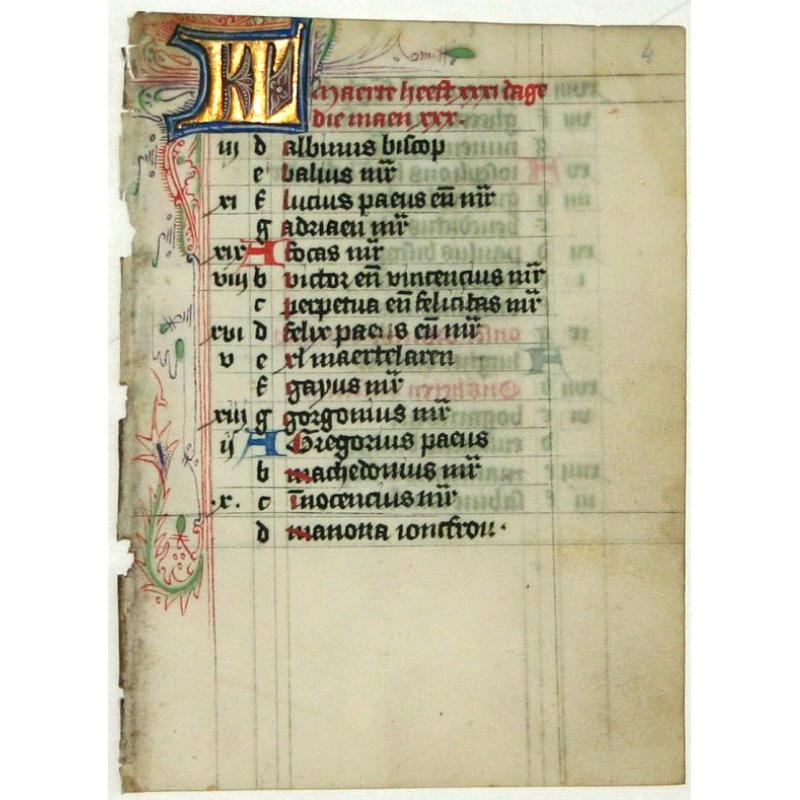 4
KL Maerte heeft xxxi dage
die maen xxx.
iii d albinus biscop
e basius mr̄
xi f lucius paeus eñ mr̄
g adriaen mr̄
xix A focas mr̄
viii b victor eñ vincencius mr̄
c perpetua eñ felicitas mr̄
xvi d felix paeus eñ mr̄
v e xl maertelaren
f gayus mr̄
xiii g gorgonius mr̄
ii A Gregorius paeus
b machedonius mr̄
.x. c īnocencius mr̄
d ioncfrou.